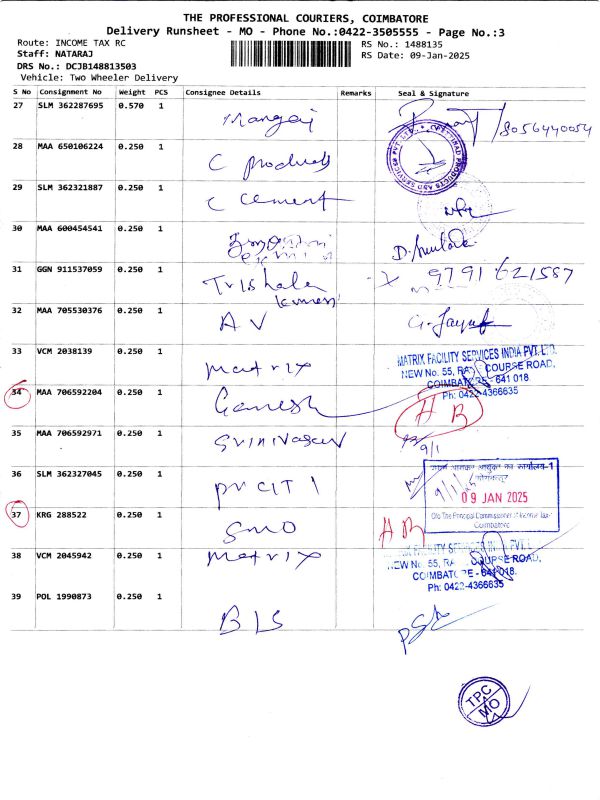 THE PROFESSIONAL COURIERS, COIMBATORE
Delivery Runsheet - MO - Phone No.:0422-3505555 - Page No.:3
Route: INCOME TAX RC
RS No.: 1488135
Staff: NATARAJ
RS Date: 09-Jan-2025
DRS No.: DCJB148813503
Vehicle: Two Wheeler Delivery
S No Consignment No Weight PCS Consignee Details Remarks Seal & Signature
27 SLM 362287695 0.570 1 Mangai 8056440054
28 MAA 650106224 0.250 1 C Products
29 SLM 362321887 0.250 1 C Cement
30 MAA 600454541 0.250 1
31 GGN 911537059 0.250 1 Trishala 9791621587
Kumari
32 MAA 705530376 0.250 1 A V
33 VCM 2038139 0.250 1 Matrix
MATRIX FACILITY SERVICES INDIA PVT. LTD.
NEW No. 55, RACE COURSE ROAD,
COIMBATORE - 641 018
Ph: 0422-4366635
34 MAA 706592204 0.250 1 Ganesh H B
35 MAA 706592971 0.250 1 Srinivasan 9/1
36 SLM 362327045 0.250 1 Pr CIT 1
प्रधान आयकर आयुक्त का कार्यालय-1
कोयम्बत्तूर
09 JAN 2025
O/o The Principal Commissioner of Income Tax-
Coimbatore
37 KRG 288522 0.250 1 SMO H B
38 VCM 2045942 0.250 1 Matrix
MATRIX FACILITY SERVICES INDIA PVT. LTD.
NEW No. 55, RACE COURSE ROAD,
COIMBATORE - 641 018.
Ph: 0422-4366635
39 POL 1990873 0.250 1 BIS
TPC
MO